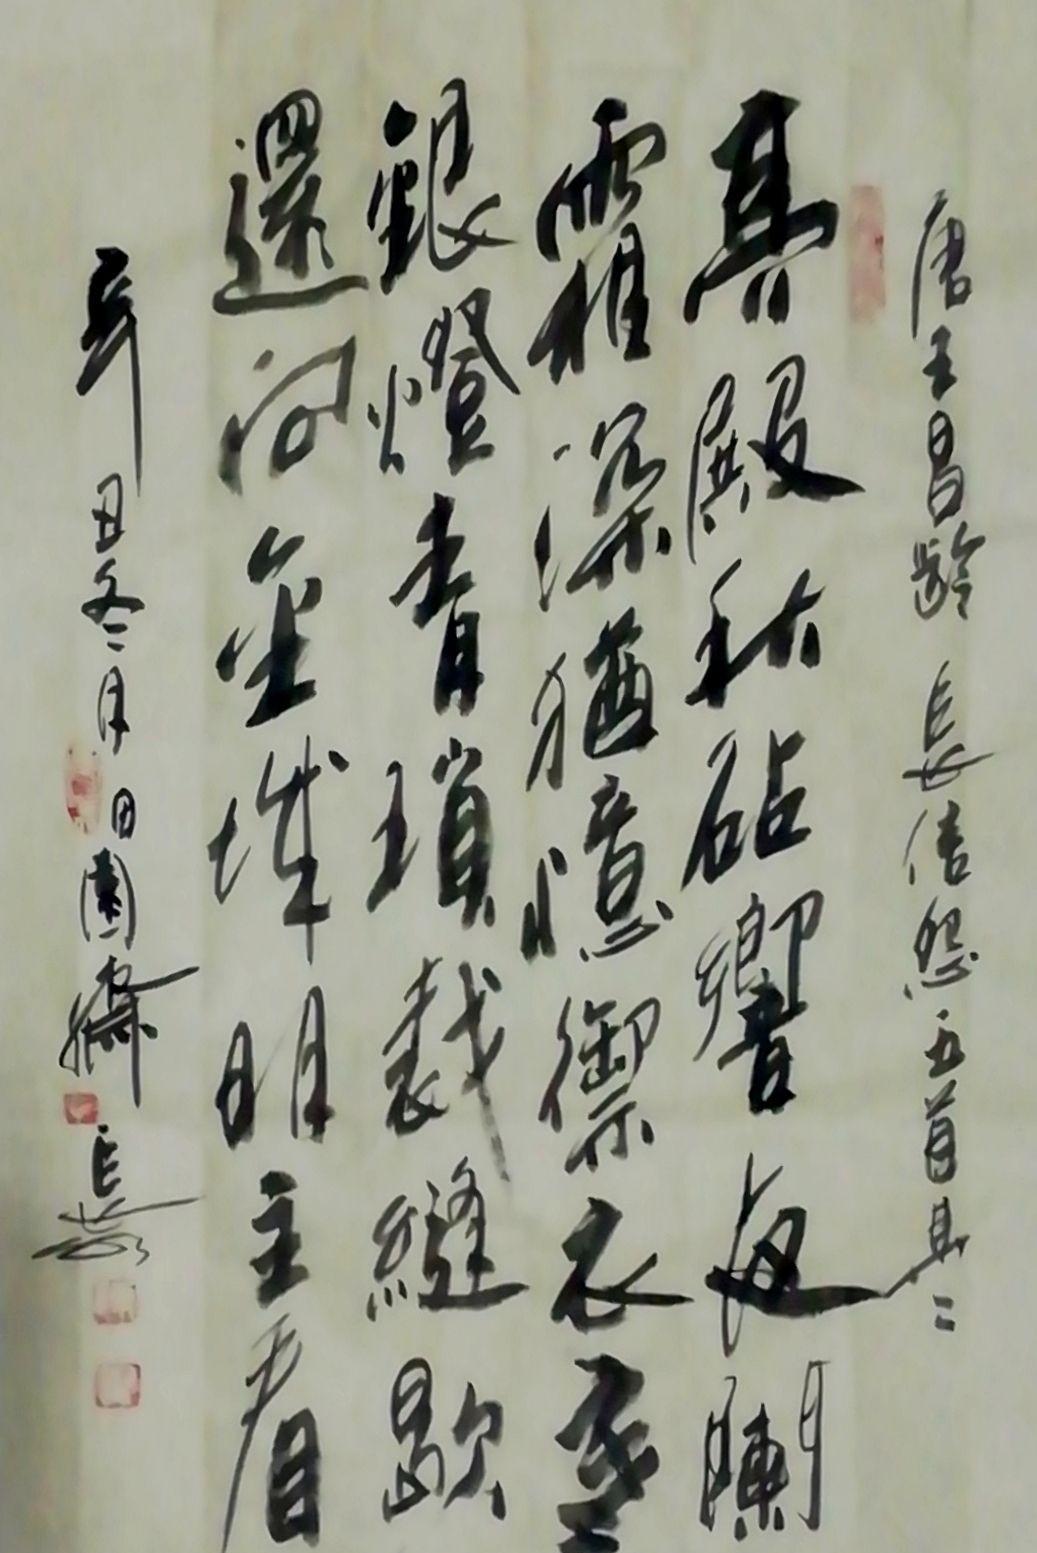 唐王昌齡 長信怨五首其二
高殿秋砧響夜闌
霜深猶憶御衣寒
銀燈青瑣裁縫歇
還向金城明主看
辛丑冬二月田園齋長